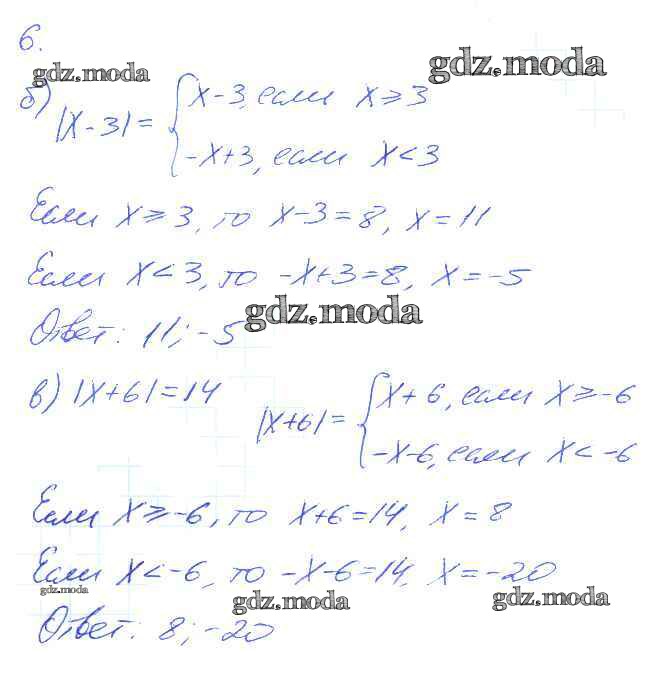 6.
gdz.moda
gdz.moda
б) |x-3| = { x-3, если x ≥ 3
-x+3, если x < 3
Если x ≥ 3, то x-3=8, x=11
Если x < 3, то -x+3=8, x=-5
gdz.moda
Ответ: 11; -5
в) |x+6|=14 |x+6| = { x+6, если x ≥ -6
-x-6, если x < -6
Если x ≥ -6, то x+6=14, x=8
Если x < -6, то -x-6=14, x=-20
gdz.moda
gdz.moda
gdz.moda
Ответ: 8; -20